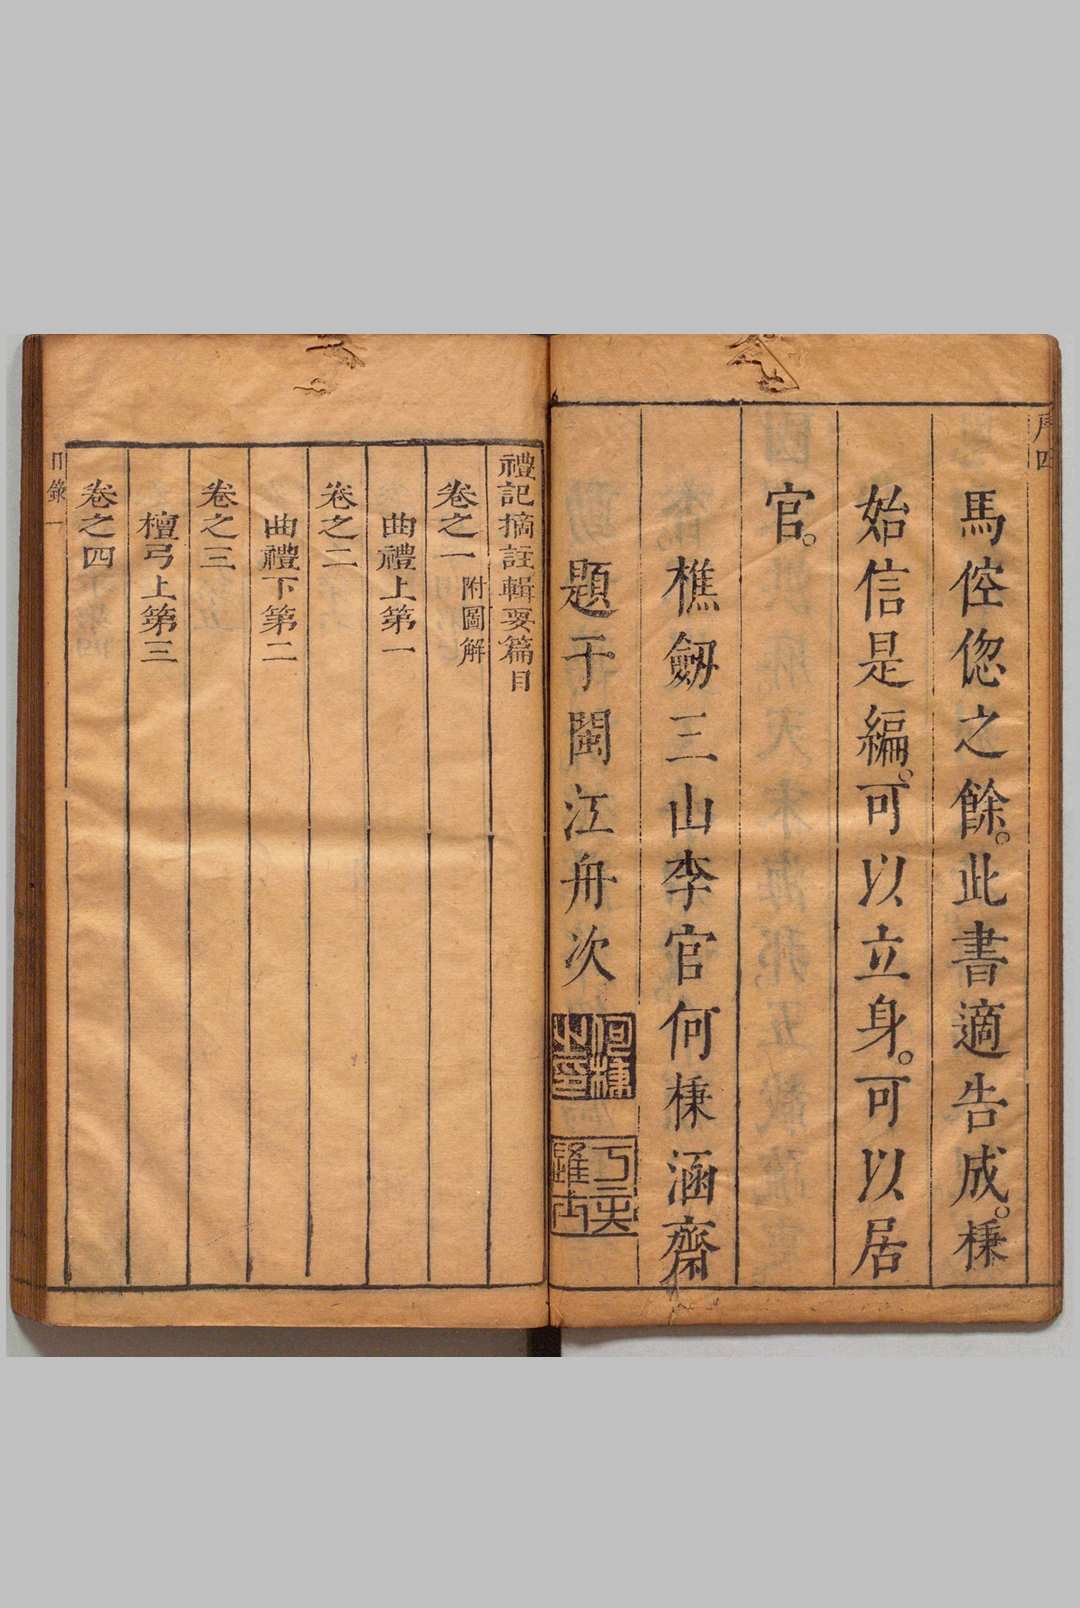 序四
馬倥偬之餘。此書適告成。棅
始信是編。可以立身。可以居
官。
樵劒三山李官何棅涵齋
題于閩江舟次
何棅之印
禮記摘註輯要篇目
卷之一 附圖解
曲禮上第一
卷之二
曲禮下第二
卷之三
檀弓上第三
卷之四
目錄一